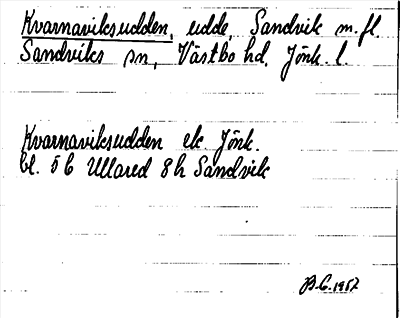 Kvarnaviksudden, udde, Sandvik m.fl.
Sandviks sn, Västbo hd, Jönk. l.
Kvarnaviksudden ek. Jönk.
bl. 5C Ullared 8h Sandvik
B.C. 1957